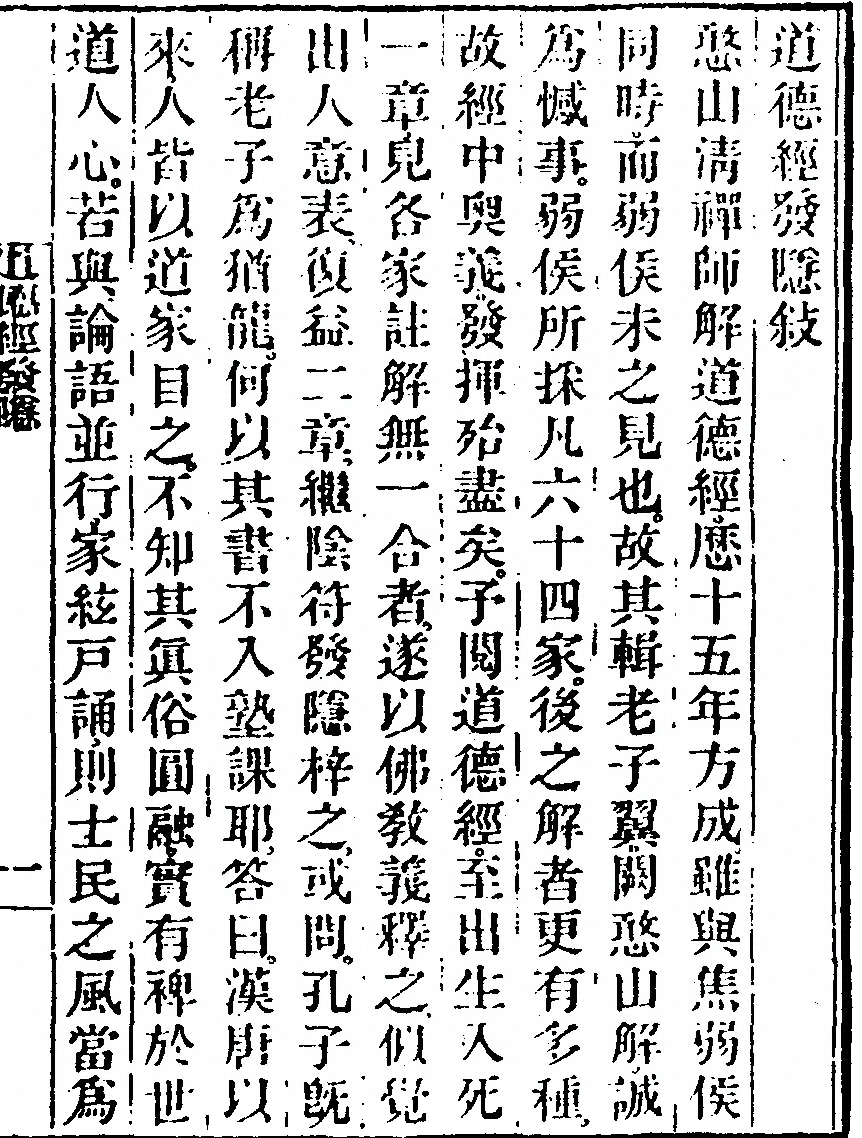 道德經發隱敍
憨山清禪師解道德經歷十五年方成雖與焦弱侯
同時而弱侯未之見也。故其輯老子翼闕憨山解、誠
爲憾事。弱侯所採凡六十四家。後之解者更有多種、
故經中奥義發揮殆盡矣。予閱道德經。至出生入死
一章見各家註解無一合者、遂以佛敎義釋之、似覺
出人意表、復益二章、繼陰符發隱梓之、或問。孔子旣
稱老子爲猶龍。何以其書不入塾課耶、答曰。漢唐以
來人皆以道家目之。不知其眞俗圓融、實有裨於世
道人心。若與論語並行、家絃戸誦、則士民之風當爲
道德經發隱
一